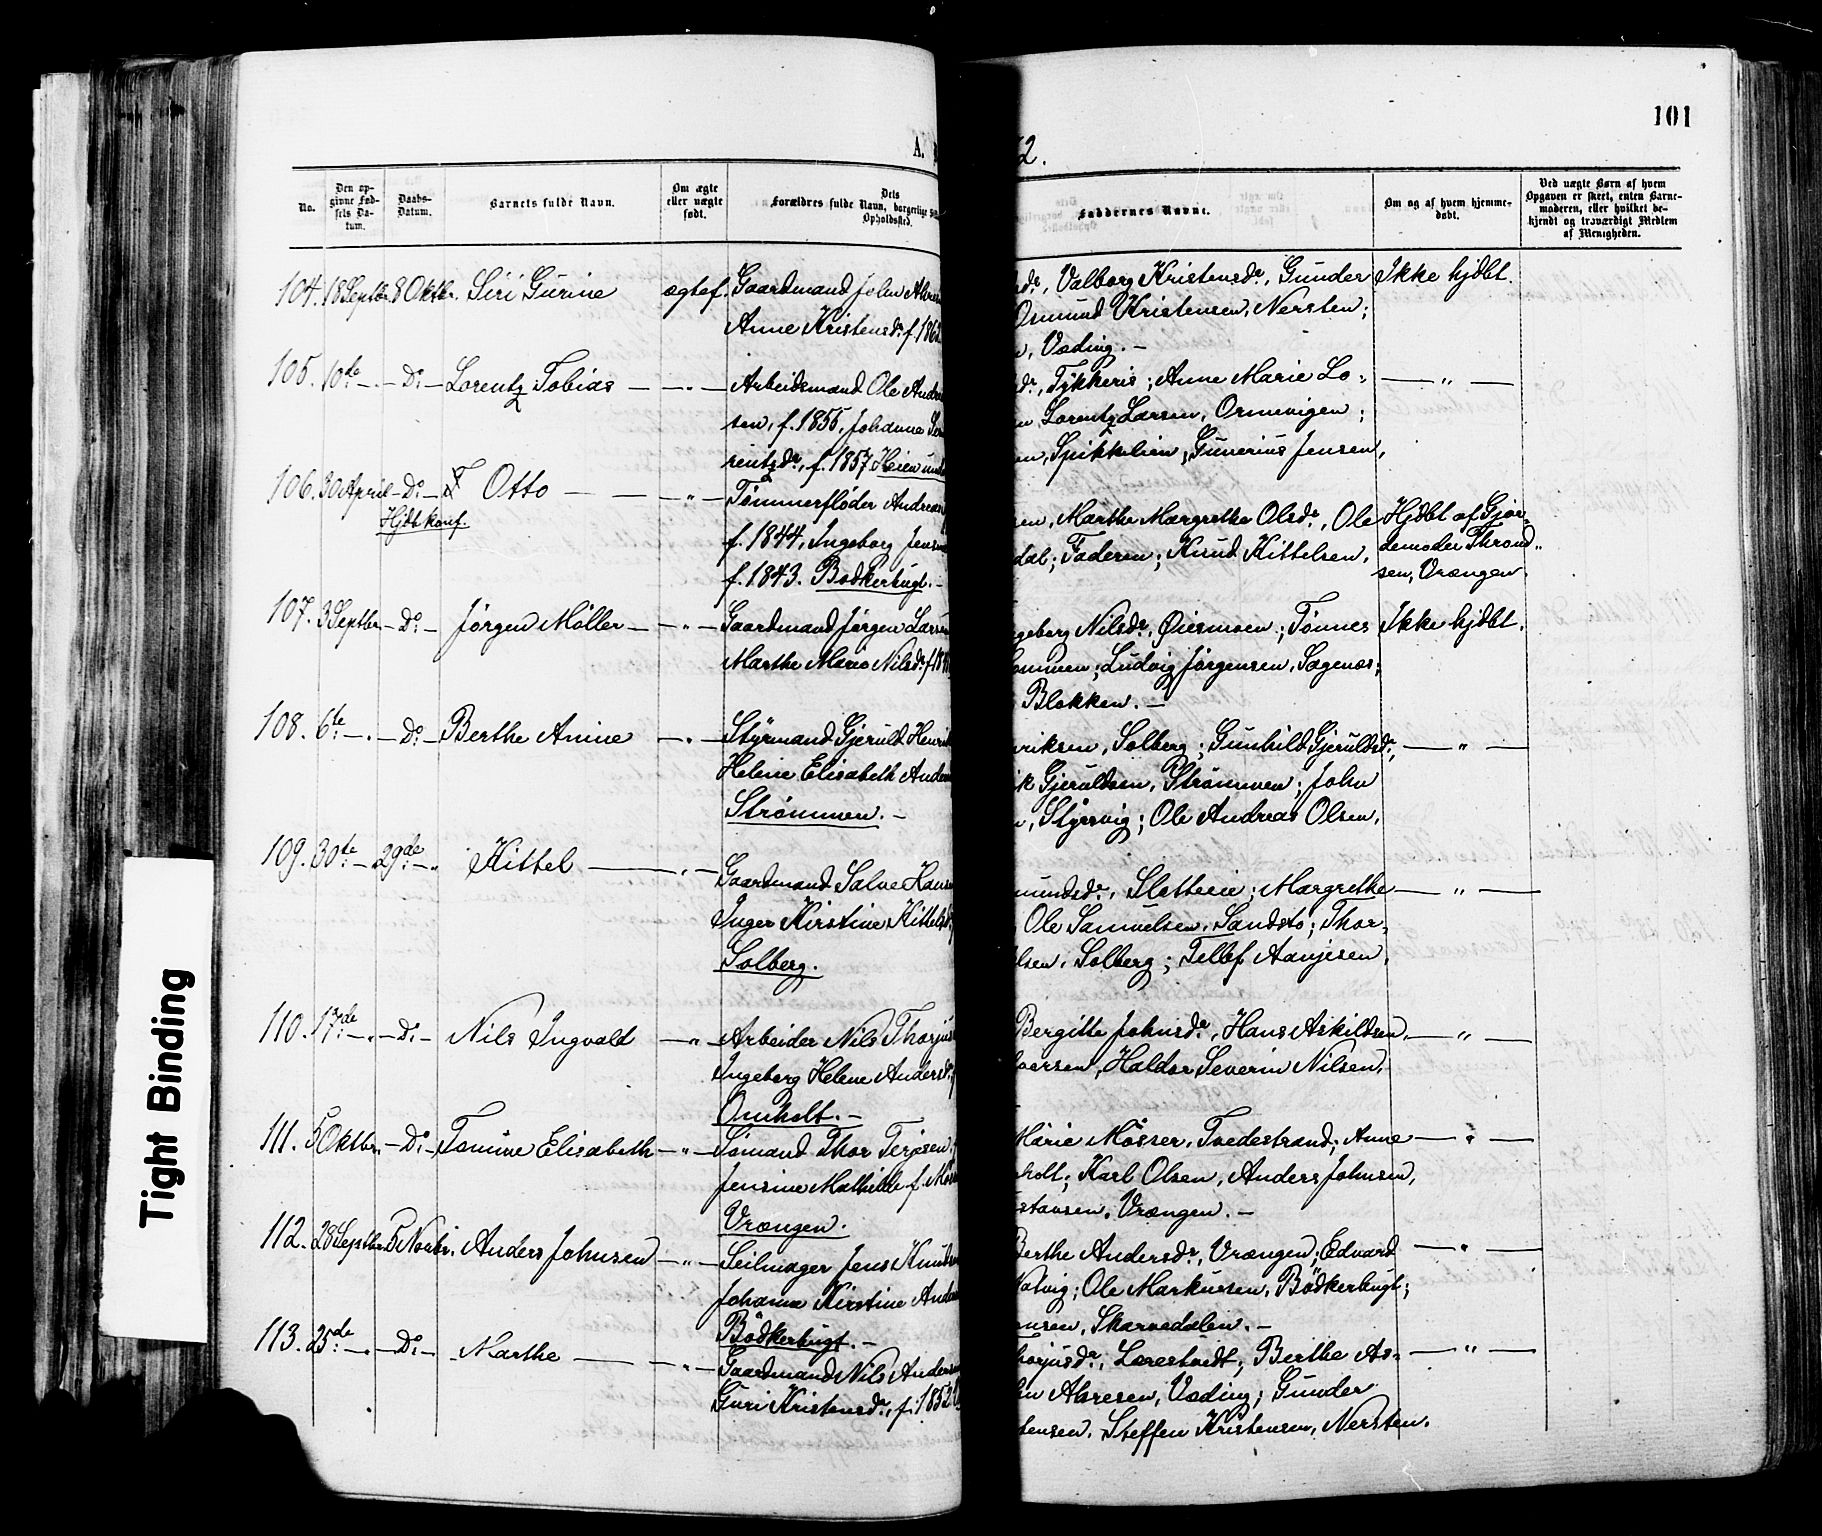 101
A.
2.
No.
Den op-
givne Fød-
sels Da-
tum.
Daabs-
Datum.
Barnets fulde Navn.
Om ægte
eller uægte
født.
Dets
Forældres fulde Navn, borgerlige
Opholdssted.
Faddernes Navne.
Om og af hvem hjemme-
døbt.
Ved uægte Børn af hvem
Opgaven er skeet, enten Barne-
moderen, eller hvilket be-
kjendt og troværdigt Medlem
af Menigheden.
104. 18 Septbr. 8 Oktbr. Siri Gurine ægtef. Gaardmand John
Anne Kristensdr. f. 186
Valborg Kristensdr., Gunder Ikke hjdbt.
Osmund Kristensen, Nersten;
Vading. —
105. 10de — . — Do. — Lorentz Tobias — — " — Arbeidsmand Ole Andr
sen, f. 1855, Johanne
rentzdr., f. 1857 Heien
Tykkeris; Anne Marie Lo- — " —
Lorentz Larsen, Ormevigen;
Spikkelien; Gunerius Jensen,
106. 30 April — Do. — Otto — — " — Tømmerfløder Andreas
Hjdt konf.
f. 1844, Ingeborg Jens
f. 1843. Bødkerbugt. —
Marthe Margrethe Olsdr., Ole Hjdbt af Gjor-
dal; Faderen; Knud Kittelsen, demoder Thrond-
sen, Vrængen.
107. 3 Septbr. — Do. — Jørgen Møller — — " — Gaardmand Jørgen Lars
Marthe Maria Nilsdr. f. 18
geborg Nilsdr., Øiesmoen; Tønnes Ikke hjdbt.
Ludvig Jørgensen, Sagenæs;
Blokken. —
108. 6te — . — Do. — Berthe Amine — " — Styrmand Gjeruld Henri
Helene Elisabeth Ander
Strømmen. —
riksen, Solberg; Gunhild Gjeruldsdr., — " —
Gjeruldsen, Strømmen; John
Styrsvig; Ole Andreas Olsen,
109. 30te — 29de — . Kittel — . — Gaardmand Salve Hans
Inger Kirstine Kittelsd
Solberg.
mundsdr., Sletteeie; Margrethe — " —
Ole Samuelsen, Sandstø; Thor-
lsen, Solberg; Tellef Aanjesen,
110. 17de — . — Do. — Nils Ingvald — " — Arbeider Nils Thorjus
Ingeborg Helene Andersd
Omholt. —
Bergitte Johnsdr., Hans Askildsen, — " —
Haldor Severin Nilsen,
111. 5 Oktbr. — Do. — Tomine Elisabeth — " — Sømand Thor Terjesen
Jensine Mathilde f. Møss
Vrængen.
Marie Møsser, Tvedestrand; Anne — " —
holt; Karl Olsen, Anders Johnsen,
stansen, Vrængen. —
112. 28 Septbr. 5 Novbr. Anders Johnsen — " — Seilmager Jens Knuds
Johanne Kirstine Ander
Bödkerbugt. —
Berthe Andersdr., Vrængen; Edvard — " —
Ole Markussen, Bödkerbugt;
ensen, Skarvedalen. —
113. 25de — . — Do. — Marthe — " — Gaardmand Nils Anders
Guri Kristensdr., f. 1852
Thorjusdr., Lørestvedt; Berthe As- — " —
Ahresen, Vading; Gunder
tensen, Steffen Kristensen, Nersten.
Tight Binding